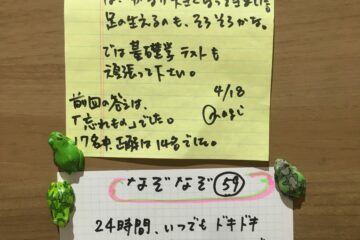 足の生えるのも、そろそろかな。
では基礎学テストも
頑張って下さい。
4/18
前回の答えは、
「忘れもの」でした。
17名中正解は14名でした。
なぞなぞ 59
24時間、いつでもドキドキ